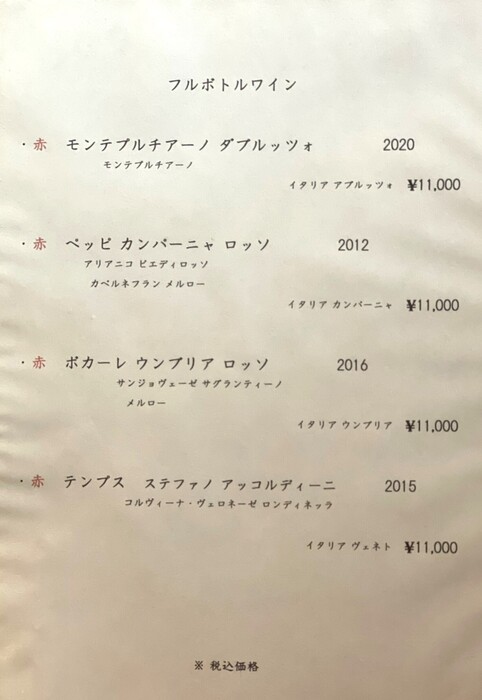 フルボトルワイン
・赤 モンテプルチアーノ ダブルッツォ 2020
モンテプルチアーノ
イタリア アブルッツォ ¥11,000
・赤 ペッピ カンパーニャ ロッソ 2012
アリアニコ ピエディロッソ
カベルネフラン メルロー
イタリア カンパーニャ ¥11,000
・赤 ボカーレ ウンブリア ロッソ 2016
サンジョヴェーゼ サグランティーノ
メルロー
イタリア ウンブリア ¥11,000
・赤 テンプス ステファノ アッコルディーニ 2015
コルヴィーナ・ヴェロネーゼ ロンディネッラ
イタリア ヴェネト ¥11,000
※ 税込価格